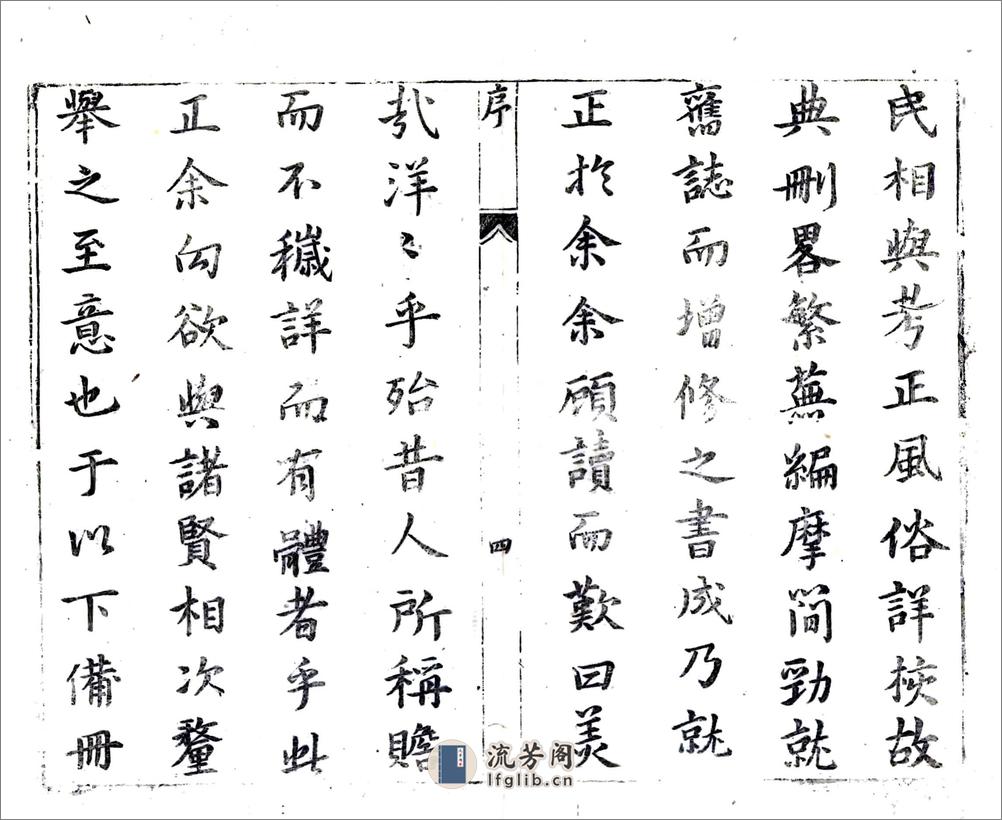 民相與考正風俗詳挍故
典刪畧繁蕪編摩簡勁就
舊誌而增修之書成乃就
正扵余余顧讀而歎曰美
序
四
㢤洋〻乎殆昔人所稱贍
而不穢詳而有體者乎此
正余向欲與諸賢相次釐
舉之至意也于以下備冊
流芳阁
lfglib.cn